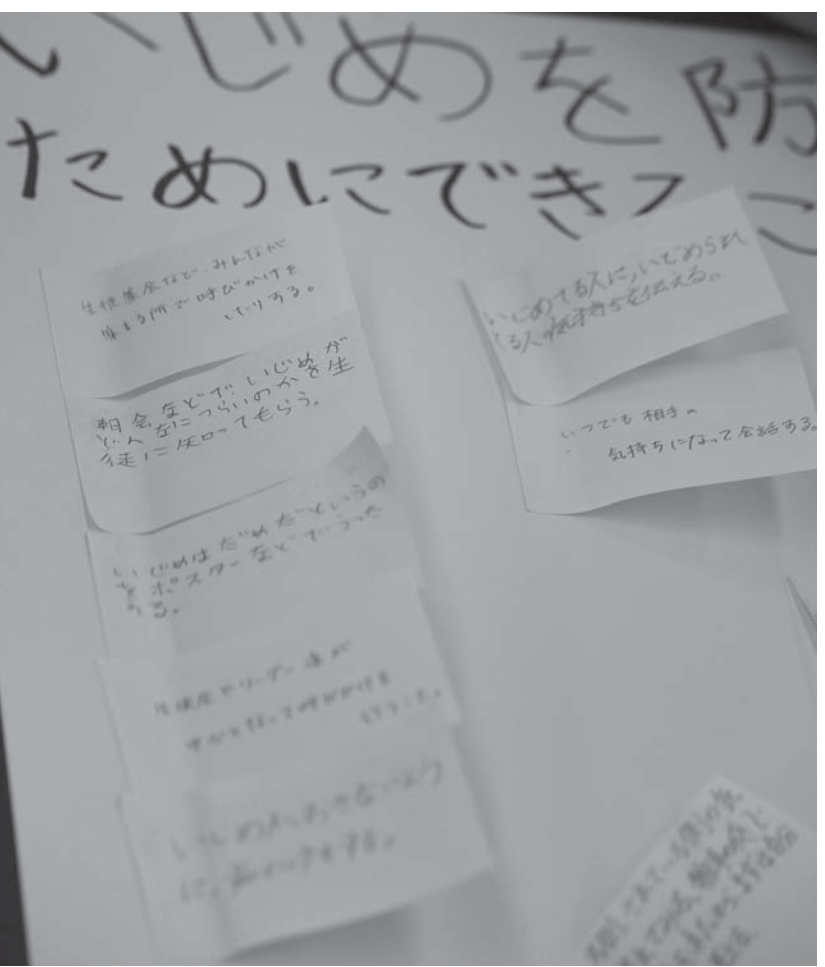 いじめを防
ためにできるこ
生徒集会など、みんなが
集まる所で呼びかけを
したりする。
朝会などで、いじめが
どんなにつらいのかを生
徒に知ってもらう。
いじめはだめだというの
をポスターなどでうった
える。
生徒会やリーダー達が
中心となって呼びかけを
行うこと。
いじめがおきないよう
に、
する。
いじめてる人に、いじめられ
てる人の気持ちを伝える。
いつでも相手の
気持ちになって会話する。